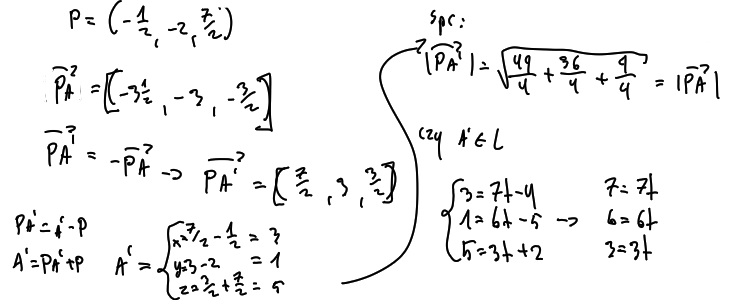 P = (-1/2, -2, 7/2)
PA→ = [-3 1/2, -3, -3/2]
PA'→ = -PA→ → PA'→ = [7/2, 3, 3/2]
PA' = A' - P
A' = PA' + P
A' = { x = 7/2 - 1/2 = 3
y = 3 - 2 = 1
z = 3/2 + 7/2 = 5
Spr:
|PA'→| = √(49/4 + 36/4 + 9/4) = |PA→|
czy A' ∈ L
{ 3 = 7t - 4    7 = 7t
1 = 6t - 5 → 6 = 6t
5 = 3t + 2    3 = 3t